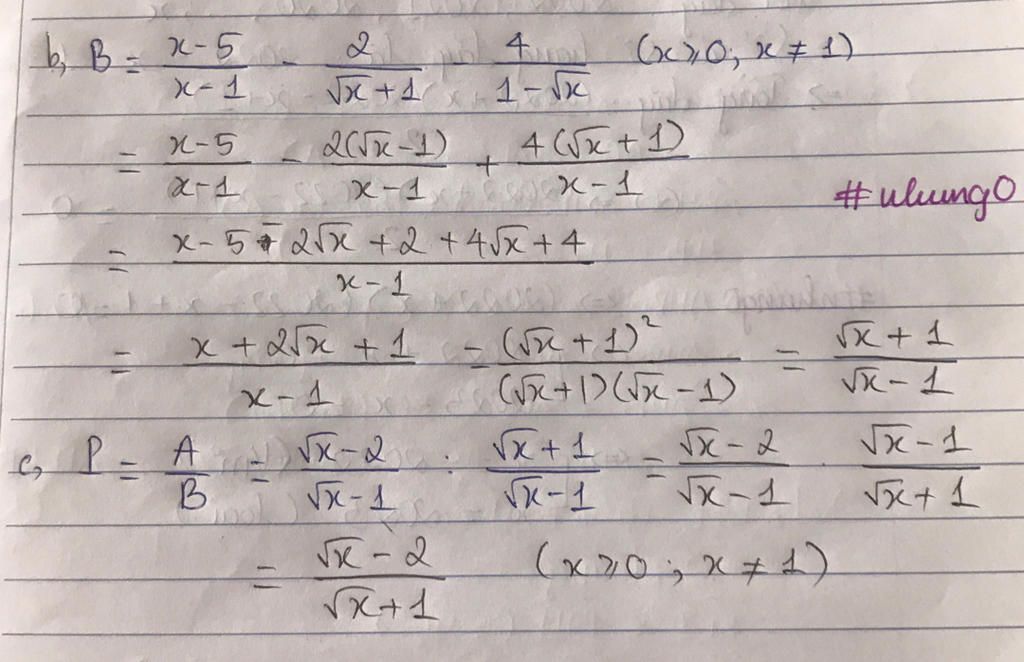 b, B = \frac{x-5}{x-1} - \frac{2}{\sqrt{x}+1} - \frac{4}{1-\sqrt{x}} (x≥0; x≠1)
= \frac{x-5}{x-1} - \frac{2(\sqrt{x}-1)}{x-1} + \frac{4(\sqrt{x}+1)}{x-1}
#ulungO
= \frac{x-5-2\sqrt{x}+2+4\sqrt{x}+4}{x-1}
= \frac{x+2\sqrt{x}+1}{x-1} = \frac{(\sqrt{x}+1)^2}{(\sqrt{x}+1)(\sqrt{x}-1)} = \frac{\sqrt{x}+1}{\sqrt{x}-1}
c, P = \frac{A}{B} = \frac{\sqrt{x}-2}{\sqrt{x}-1} : \frac{\sqrt{x}+1}{\sqrt{x}-1} = \frac{\sqrt{x}-2}{\sqrt{x}-1} . \frac{\sqrt{x}-1}{\sqrt{x}+1}
= \frac{\sqrt{x}-2}{\sqrt{x}+1} (x≥0; x≠1)